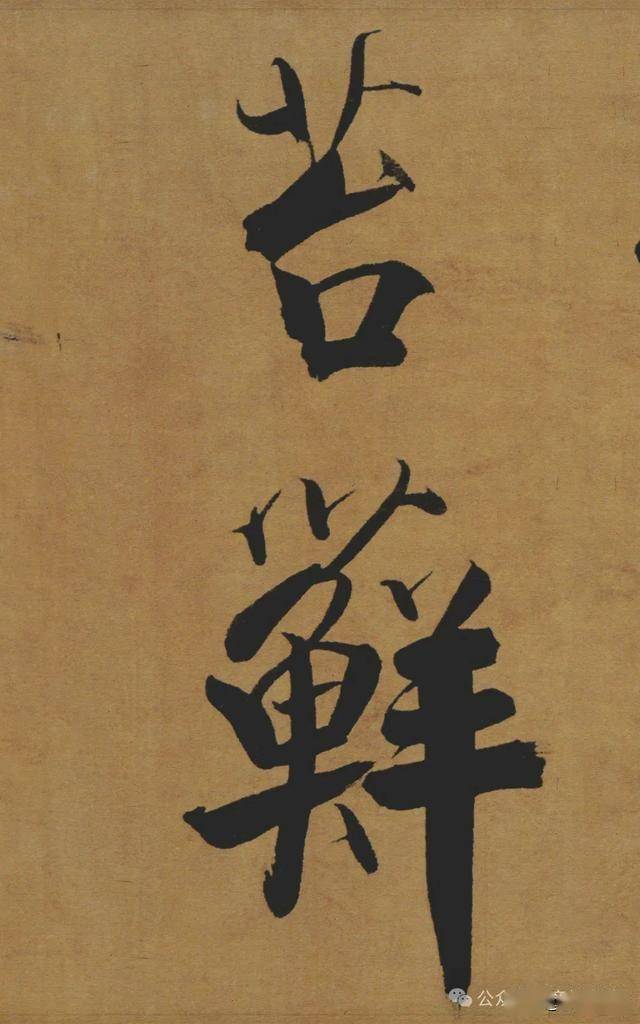 苔蘚
公众